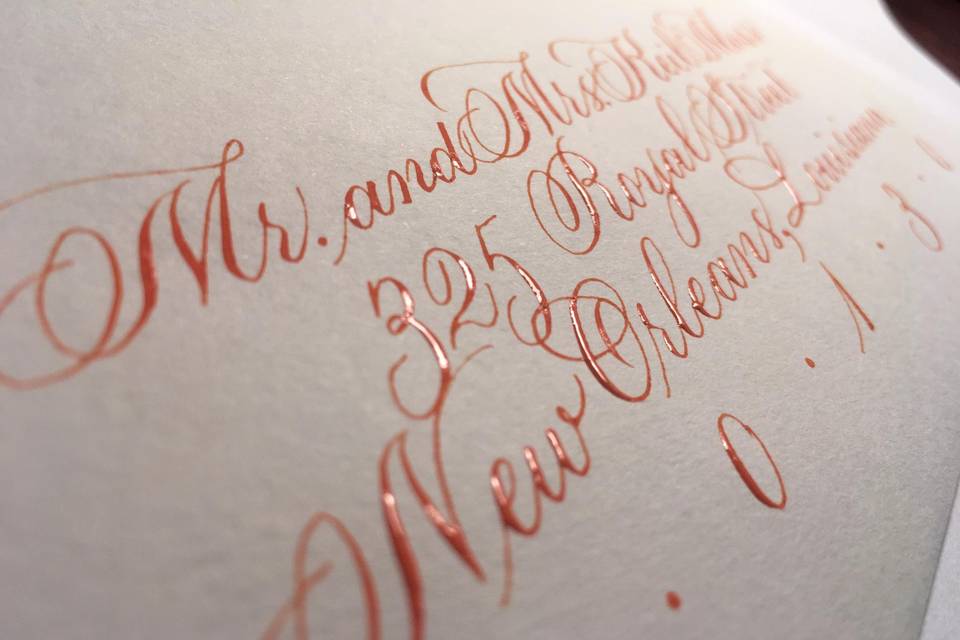 Mr. and Mrs.
325 Royal Street
New Orleans, Louisiana
· 0 · 1 · 3 · 0